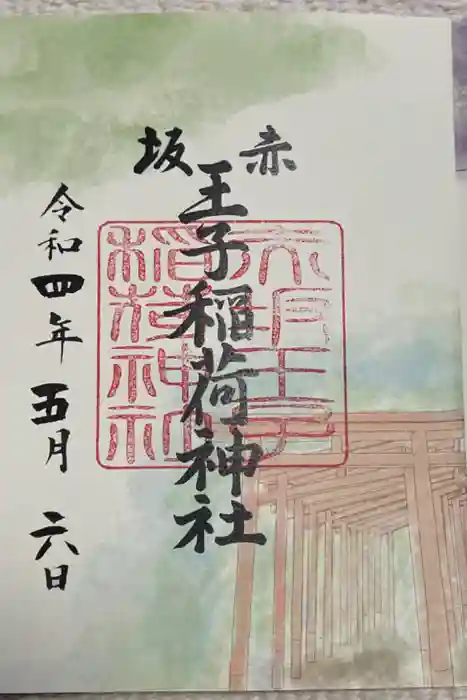 赤坂
王子稲荷神社
王子
稲荷神社
令和四年五月六日